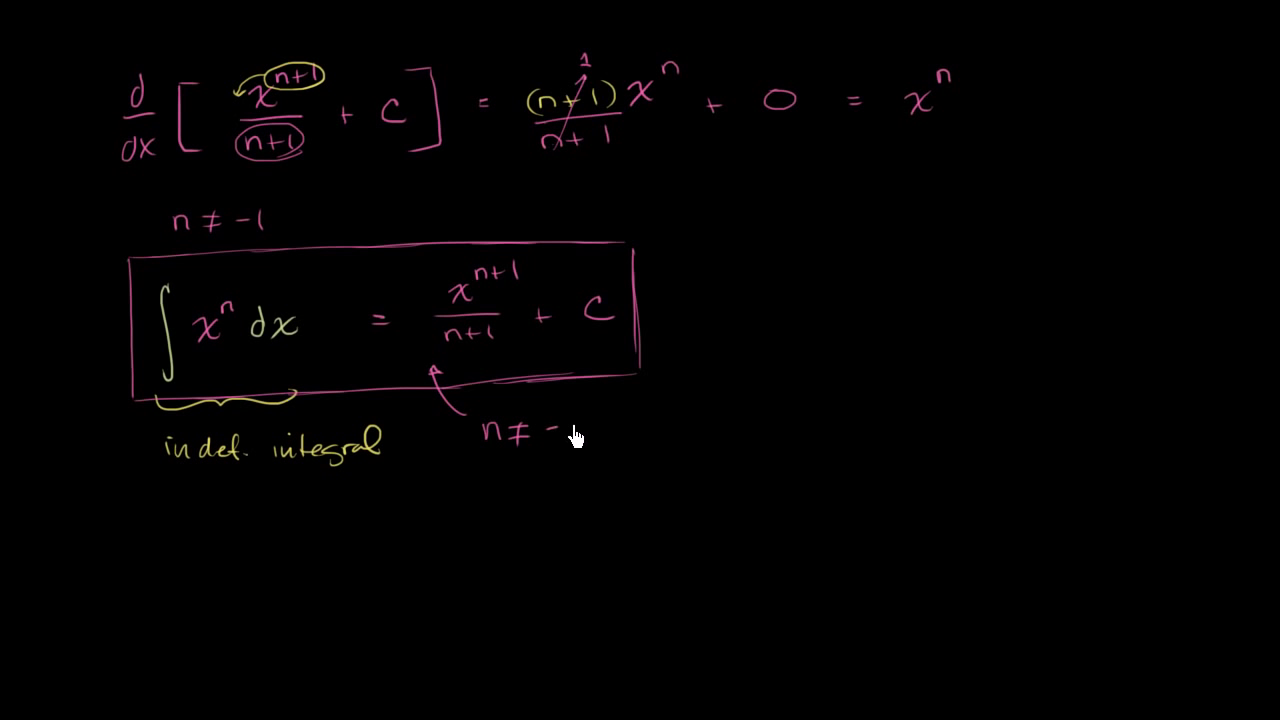 d/dx [ x^(n+1)/(n+1) + C ] = (n+1)x^n/(n+1) + 0 = x^n
1
n ≠ -1
∫ x^n dx = x^(n+1)/(n+1) + C
indef. integral
n ≠ -